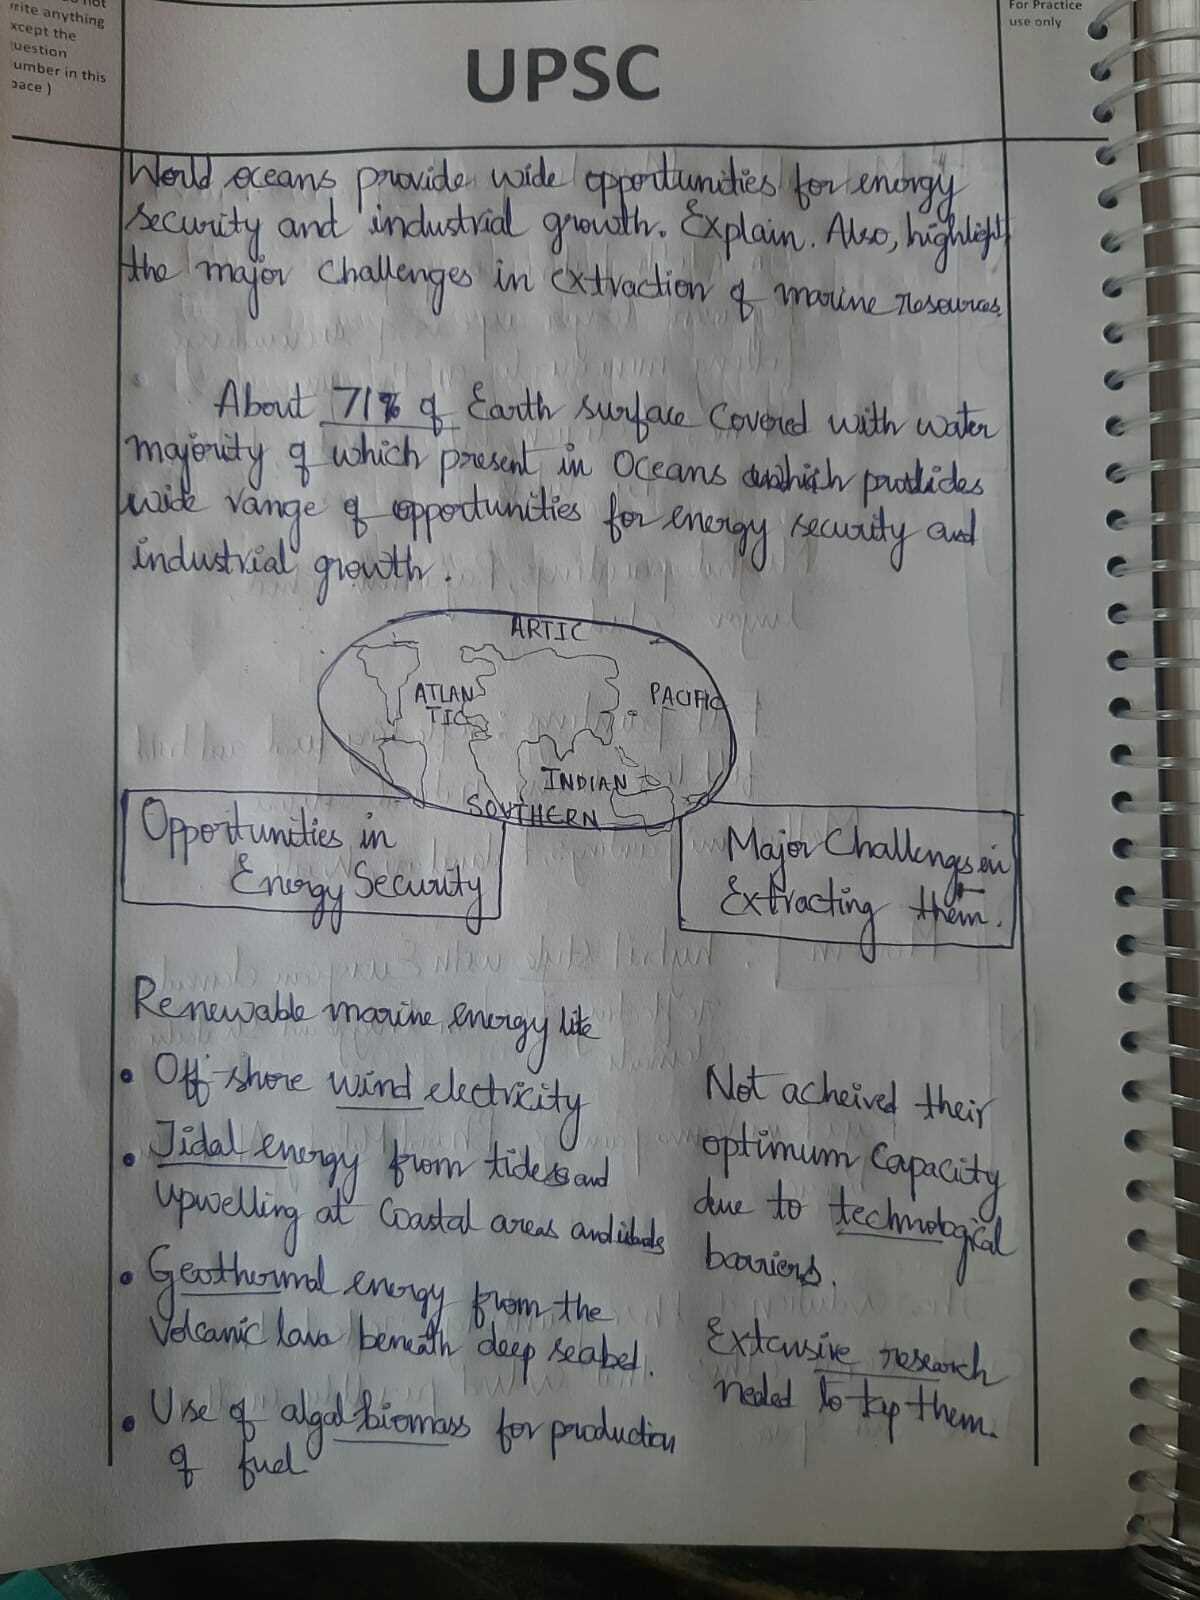 not
write anything
xcept the
uestion
umber in this
pace )
For Practice
use only
UPSC
World oceans provide wide opportunities for energy
security and industrial growth. Explain. Also, highlight
the major challenges in extraction of marine resources.
About 71% of Earth surface covered with water
majority of which present in oceans which provides
wide range of opportunities for energy security and
industrial growth.
ARTIC
ATLAN
TIC
PACIFIC
INDIAN
SOUTHERN
Opportunities in
Energy Security
Major Challenges in
Extracting them.
Renewable marine energy like
• Off-shore wind electricity
• Tidal energy from tides and
upwelling at coastal areas and
• Geothermal energy from the
Volcanic lava beneath deep seabed.
• Use of algal biomass for production
of fuel
Not acheived their
optimum capacity
due to technological
barriers.
Extensive research
needed to tap them.